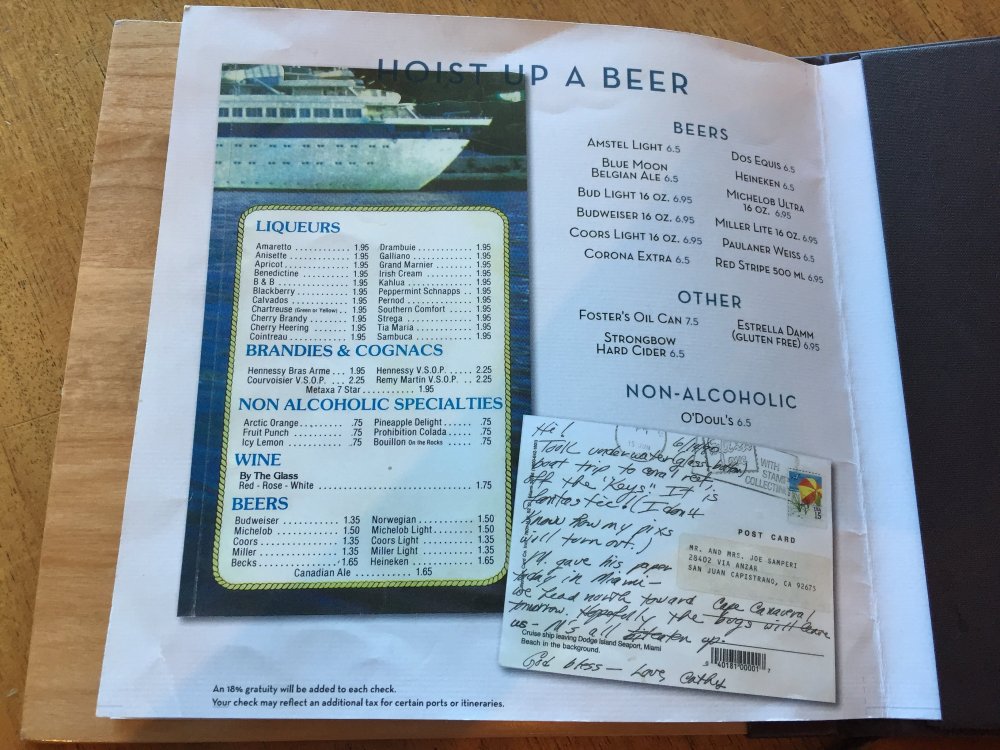 HOIST UP A BEER
LIQUEURS
Amaretto 1.95 Drambuie 1.95
Anisette 1.95 Galliano 1.95
Apricot 1.95 Grand Marnier 1.95
Benedictine 1.95 Irish Cream 1.95
B & B 1.95 Kahlua 1.95
Blackberry 1.95 Peppermint Schnapps 1.95
Calvados 1.95 Pernod 1.95
Chartreuse (Green or Yellow) 1.95 Southern Comfort 1.95
Cherry Brandy 1.95 Strega 1.95
Cherry Heering 1.95 Tia Maria 1.95
Cointreau 1.95 Sambuca 1.95
BRANDIES & COGNACS
Hennessy Bras Arme 1.95 Hennessy V.S.O.P. 2.25
Courvoisier V.S.O.P. 2.25 Remy Martin V.S.O.P. 2.25
Metaxa 7 Star 1.95
NON ALCOHOLIC SPECIALTIES
Arctic Orange .75 Pineapple Delight .75
Fruit Punch .75 Prohibition Colada .75
Icy Lemon .75 Bouillon On the Rocks .75
WINE
By The Glass
Red - Rose - White 1.75
BEERS
Budweiser 1.35 Norwegian 1.50
Michelob 1.50 Michelob Light 1.50
Coors 1.35 Coors Light 1.35
Miller 1.35 Miller Light 1.35
Becks 1.65 Heineken 1.65
Canadian Ale 1.65
BEERS
AMSTEL LIGHT 6.5
BLUE MOON
BELGIAN ALE 6.5
BUD LIGHT 16 OZ. 6.95
BUDWEISER 16 OZ. 6.95
COORS LIGHT 16 OZ. 6.95
CORONA EXTRA 6.5
DOS EQUIS 6.5
HEINEKEN 6.5
MICHELOB ULTRA
16 OZ. 6.95
MILLER LITE 16 OZ. 6.95
PAULANER WEISS 6.5
RED STRIPE 500 ML 6.95
OTHER
FOSTER'S OIL CAN 7.5
STRONGBOW
HARD CIDER 6.5
ESTRELLA DAMM
(GLUTEN FREE) 6.95
NON-ALCOHOLIC
O'DOUL'S 6.5
Hi!
Took underwater glass bottom
boat trip to coral reef
off the "Keys" It is
fantastic! (I don't
know how my pixs
will turn out.)
M. gave his paper
today in Miami -
we head north toward Cape Canaveral
tomorrow. Hopefully the bugs will leave
us - M's all bitten up.
God bless - Love, Cathy
WITH
STAMP
COLLECTING
15
POST CARD
MR. AND MRS. JOE SAMPERI
28402 VIA ANZAR
SAN JUAN CAPISTRANO, CA 92675
Cruise ship leaving Dodge Island Seaport, Miami
Beach in the background.
40181 00001 7
An 18% gratuity will be added to each check.
Your check may reflect an additional tax for certain ports or itineraries.